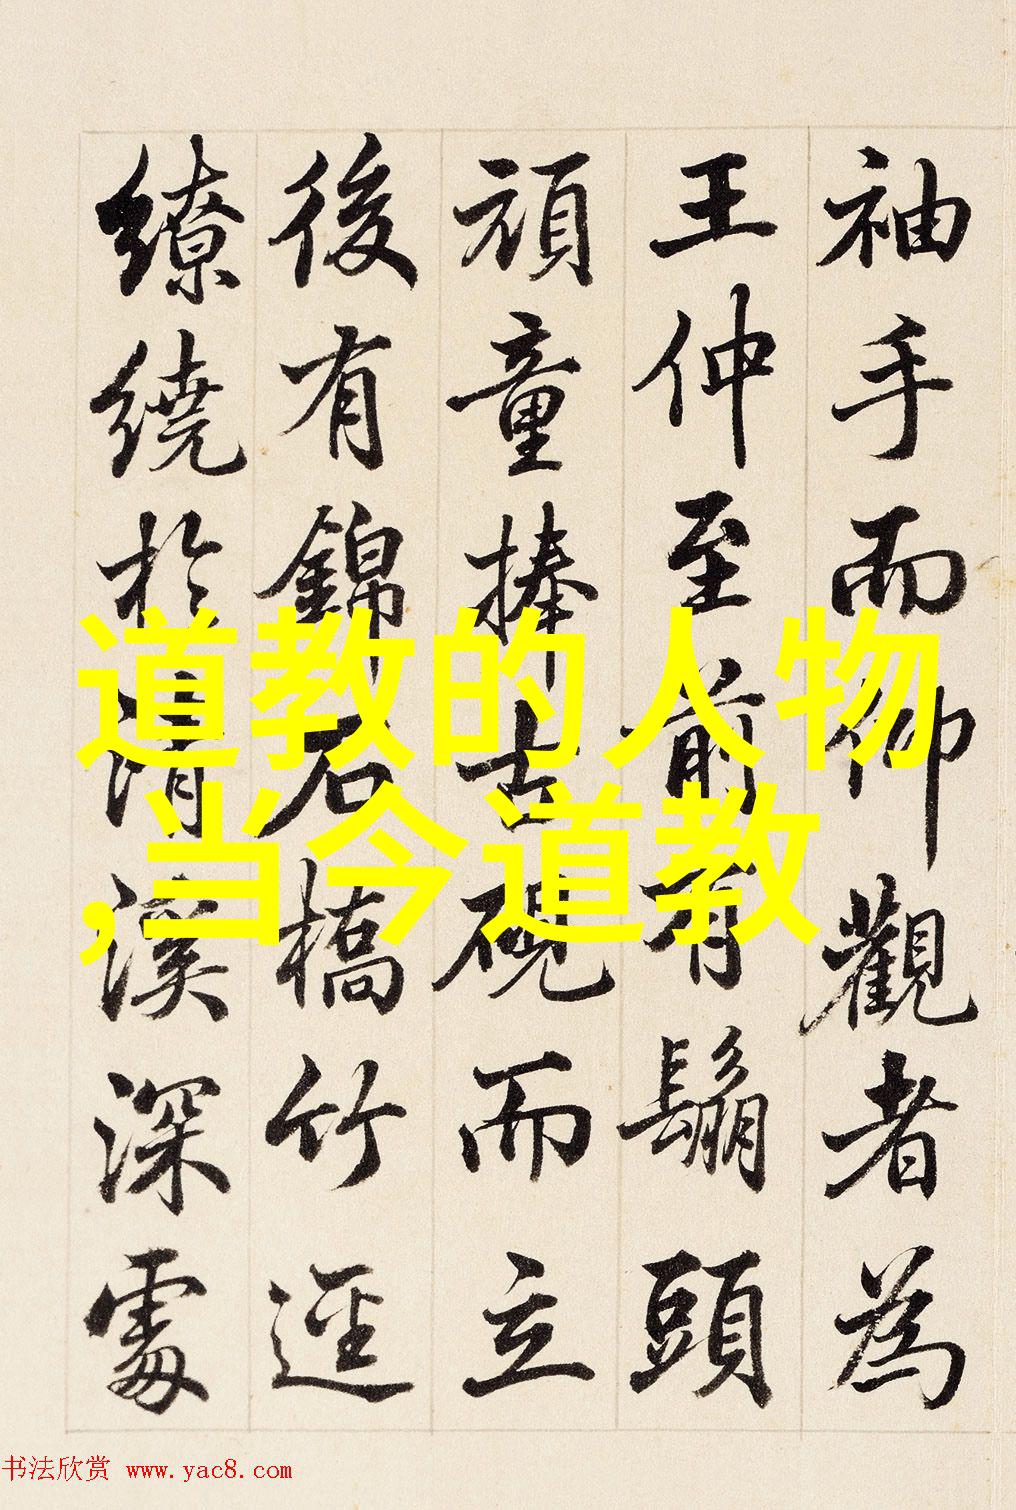 袖手而仰觀者為
王仲至前有鬅頭
頑童捧古硯而立
後有錦石橋竹逕
繚繞於清溪深處
道教的人物
,当今道教
书法欣赏 www.yac8.com